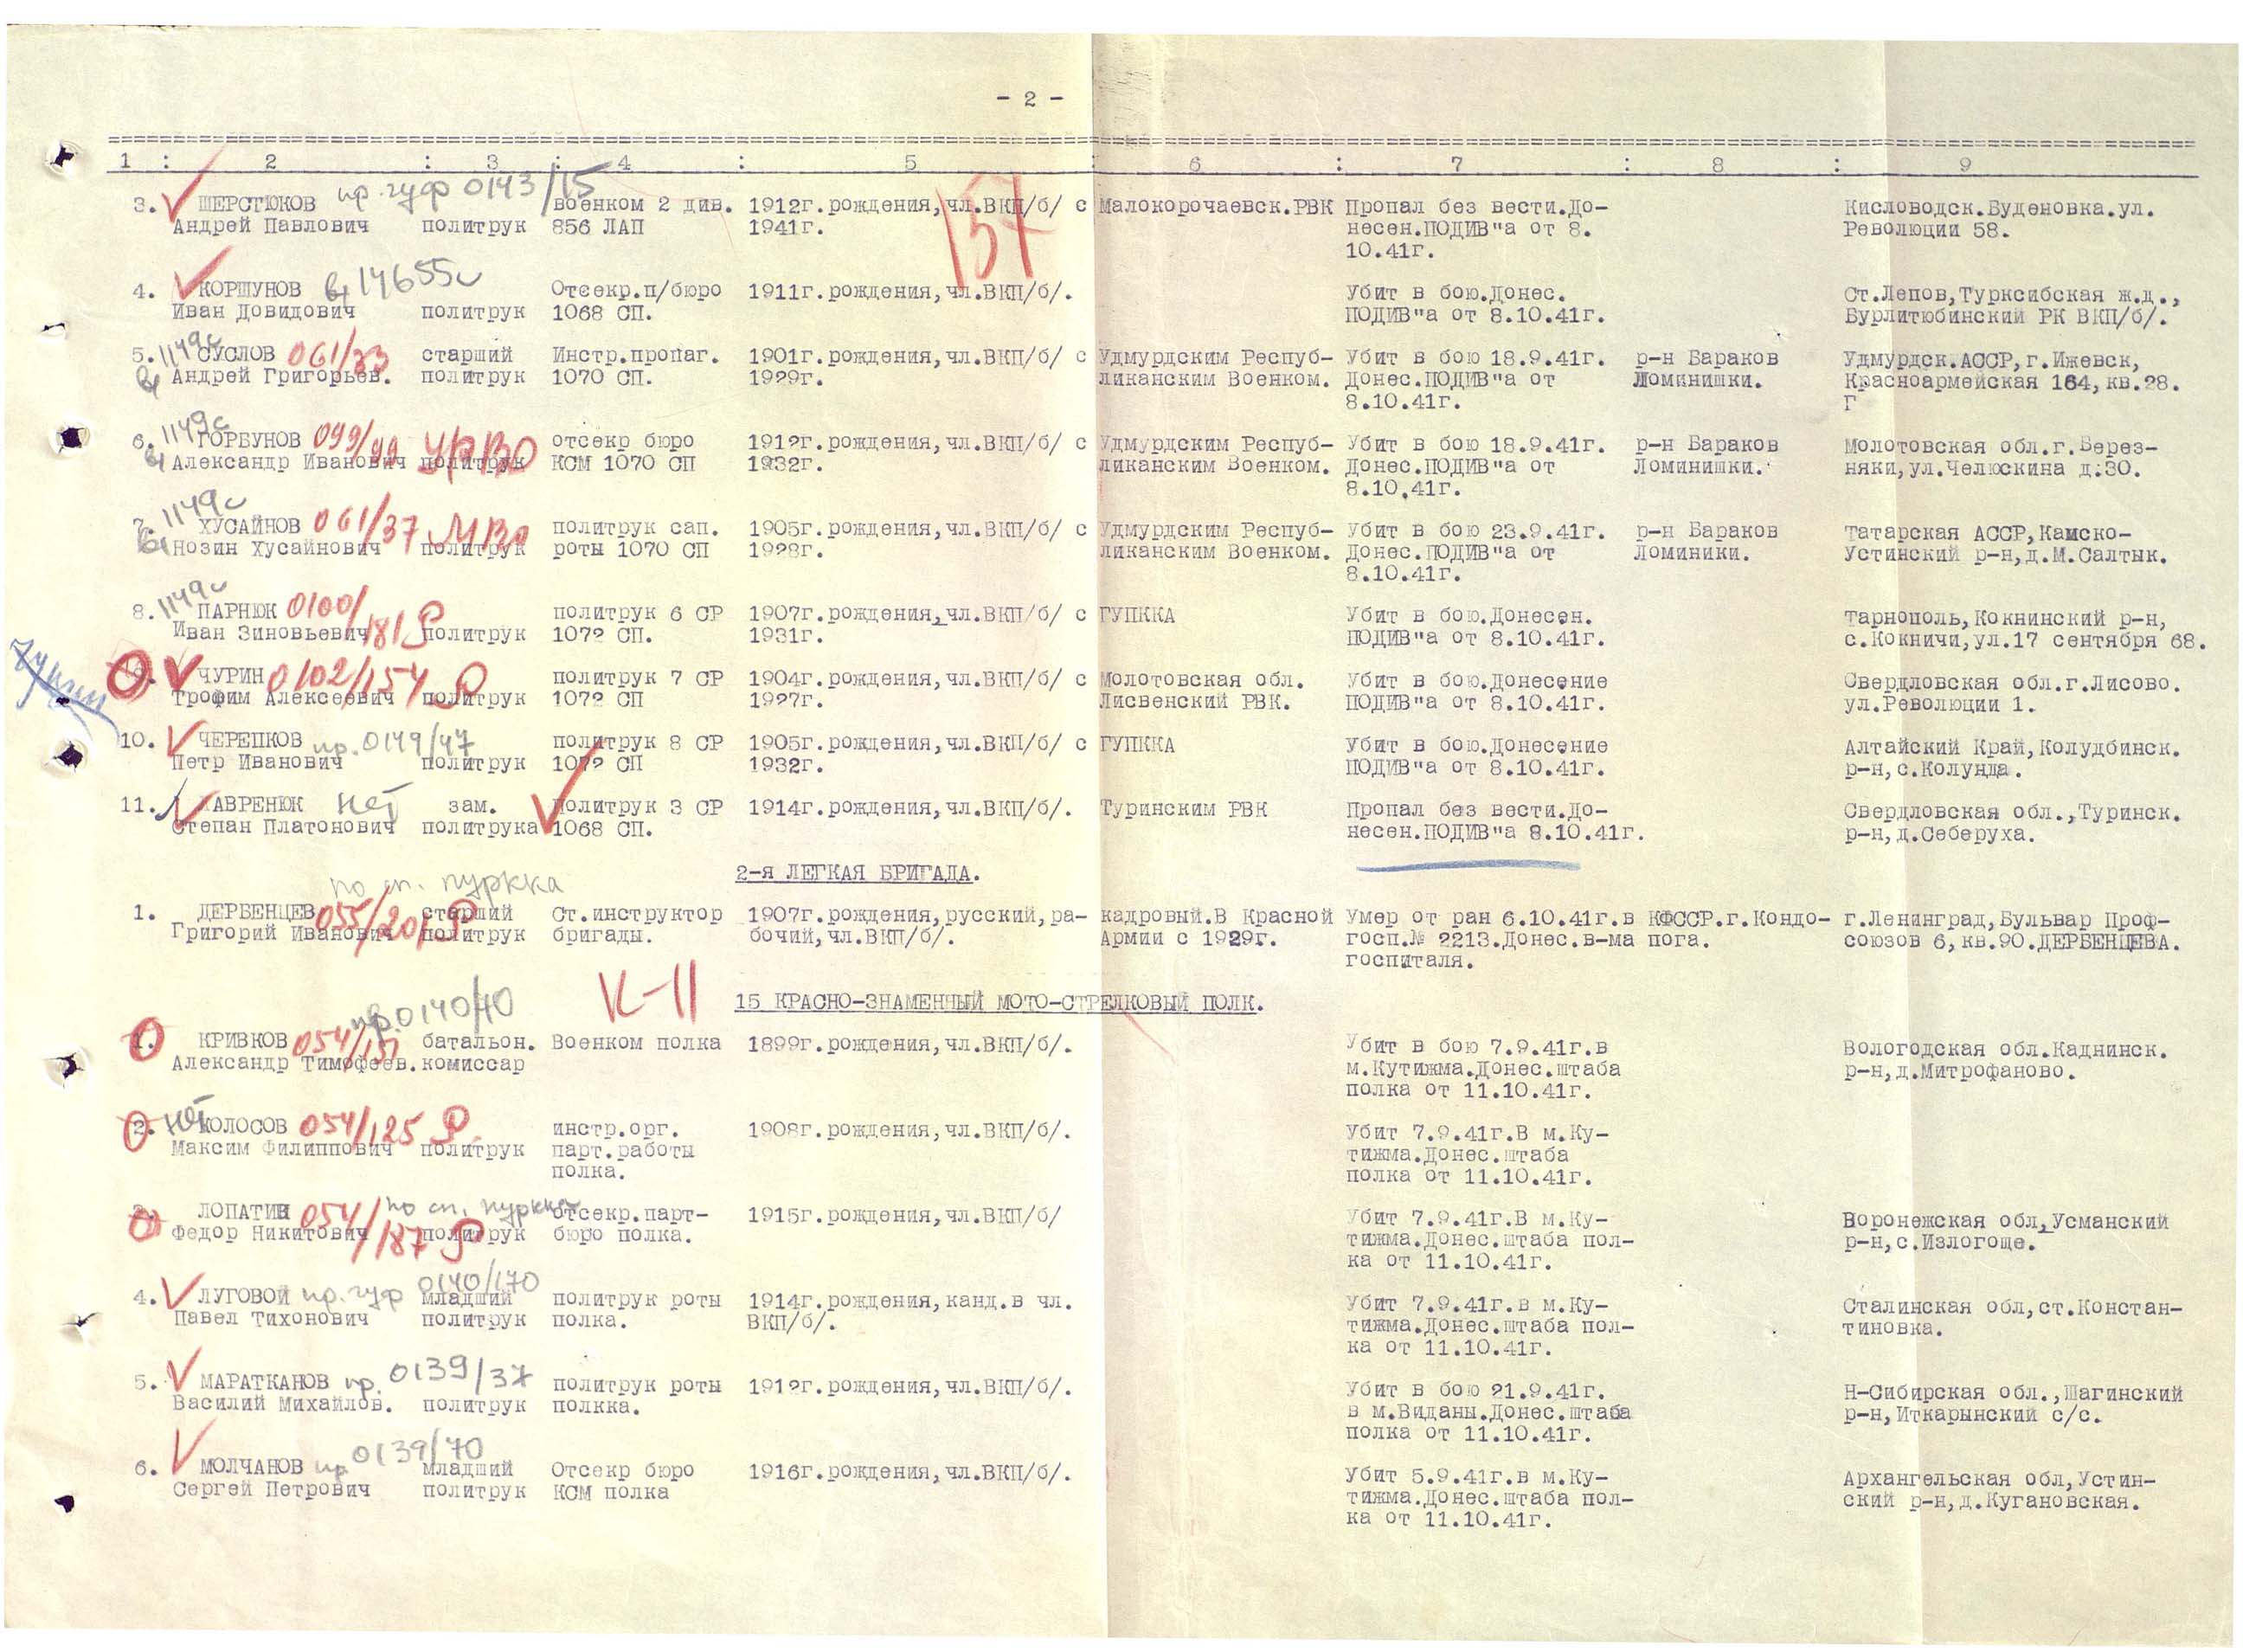 - 2 -
1 : 2 : 3 : 4 : 5 : 6 : 7 : 8 : 9
пр. гуф 0143/15
157
3. ШЕРСТЮКОВ военком 2 див. 1912г.рождения,чл.ВКП/б/ с Малокорочаевск.РВК Пропал без вести.До- Кисловодск.Буденовка.ул.
Андрей Павлович политрук 856 ЛАП 1941г. несен.ПОДИВ"а от 8. Революции 58.
10.41г.
14655с
4. КОРШУНОВ Отсекр.п/бюро 1911г.рождения,чл.ВКП/б/. Убит в бою.Донес. Ст.Лепов,Турксибская ж.д.,
Иван Довидович политрук 1068 СП. ПОДИВ"а от 8.10.41г. Бурлитюбинский РК ВКП/б/.
1149с
5. СУСЛОВ 061/33 старший Инстр.пропаг. 1901г.рождения,чл.ВКП/б/ с Удмурдским Респуб- Убит в бою 18.9.41г. р-н Бараков Удмурдск.АССР,г.Ижевск,
Андрей Григорьев. политрук 1070 СП. 1929г. ликанским Военком. Донес.ПОДИВ"а от Ломинишки. Красноармейская 164,кв.28.
8.10.41г. Г
1149с
6. ГОРБУНОВ 099/99 УрВО отсекр бюро 1912г.рождения,чл.ВКП/б/ с Удмурдским Респуб- Убит в бою 18.9.41г. р-н Бараков Молотовская обл.г.Берез-
Александр Иванович политрук КСМ 1070 СП 1932г. ликанским Военком. Донес.ПОДИВ"а от Ломинишки. няки,ул.Челюскина д.30.
8.10.41г.
1149с
7. ХУСАЙНОВ 061/37 МВО политрук сап. 1905г.рождения,чл.ВКП/б/ с Удмурдским Респуб- Убит в бою 23.9.41г. р-н Бараков Татарская АССР,Камско-
Нозин Хусайнович политрук роты 1070 СП 1928г. ликанским Военком. Донес.ПОДИВ"а от Ломиники. Устинский р-н,д.М.Салтык.
8.10.41г.
1149с
8. ПАРНЮК 0100/181 Р политрук 6 СР 1907г.рождения,чл.ВКП/б/ с ГУПККА Убит в бою.Донесен. Тарнополь,Кокнинский р-н,
Иван Зиновьевич политрук 1072 СП. 1931г. ПОДИВ"а от 8.10.41г. с.Кокничи,ул.17 сентября 68.
9. ЧУРИН 0102/154 Р политрук 7 СР 1904г.рождения,чл.ВКП/б/ с Молотовская обл. Убит в бою.Донесение Свердловская обл.г.Лисово.
Трофим Алексеевич политрук 1072 СП 1927г. Лисвенский РВК. ПОДИВ"а от 8.10.41г. ул.Революции 1.
10. ЧЕРЕПКОВ пр. 0149/47 политрук 8 СР 1905г.рождения,чл.ВКП/б/ с ГУПККА Убит в бою.Донесение Алтайский Край,Колудбинск.
Петр Иванович политрук 1072 СП 1932г. ПОДИВ"а от 8.10.41г. р-н,с.Колунда.
11. ЛАВРЕНЮК нет зам. Политрук 3 СР 1914г.рождения,чл.ВКП/б/. Туринским РВК Пропал без вести.До- Свердловская обл.,Туринск.
Степан Платонович политрука 1068 СП. несен.ПОДИВ"а 8.10.41г. р-н,д.Себеруха.
2-я ЛЕГКАЯ БРИГАДА.
по сп. пуркка
1. ДЕРБЕНЦЕВ 055/201 Р старший Ст.инструктор 1907г.рождения,русский,ра- кадровый.В Красной Умер от ран 6.10.41г.в КФССР.г.Кондо- г.Ленинград,Бульвар Проф-
Григорий Иванович политрук бригады. бочий,чл.ВКП/б/. Армии с 1929г. госп.№ 2213.Донес.в-ма пога. союзов 6,кв.90.ДЕРБЕНЦЕВА.
госпиталя.
К-11
15 КРАСНО-ЗНАМЕННЫЙ МОТО-СТРЕЛКОВЫЙ ПОЛК.
пр. 0140/40
1. КРИВКОВ 054/151 батальон. Военком полка 1899г.рождения,чл.ВКП/б/. Убит в бою 7.9.41г.в Вологодская обл.Каднинск.
Александр Тимофеев. комиссар м.Кутижма.Донес.штаба р-н,д.Митрофаново.
полка от 11.10.41г.
нет
2. КОЛОСОВ 054/125 Р. инстр.орг. 1908г.рождения,чл.ВКП/б/. Убит 7.9.41г.В м.Ку-
Максим Филиппович политрук парт.работы тижма.Донес.штаба
полка. полка от 11.10.41г.
по сп. пуркка
3. ЛОПАТИН 054/187 Р отсекр.парт- 1915г.рождения,чл.ВКП/б/ Убит 7.9.41г.В м.Ку- Воронежская обл,Усманский
Федор Никитович политрук бюро полка. тижма.Донес.штаба пол- р-н,с.Излогоще.
ка от 11.10.41г.
пр. гуф 0140/170
4. ЛУГОВОЙ младший политрук роты 1914г.рождения,канд.в чл. Убит 7.9.41г.в м.Ку- Сталинская обл,ст.Констан-
Павел Тихонович политрук полка. ВКП/б/. тижма.Донес.штаба пол- тиновка.
ка от 11.10.41г.
5. МАРАТКАНОВ пр. 0139/37 политрук роты 1912г.рождения,чл.ВКП/б/. Убит в бою 21.9.41г. Н-Сибирская обл.,Шагинский
Василий Михайлов. политрук полкка. в м.Виданы.Донес.штаба р-н,Иткарынский с/с.
полка от 11.10.41г.
пр 0139/70
6. МОЛЧАНОВ младший Отсекр бюро 1916г.рождения,чл.ВКП/б/. Убит 5.9.41г.в м.Ку- Архангельская обл,Устин-
Сергей Петрович политрук КСМ полка тижма.Донес.штаба пол- ский р-н,д.Кугановская.
ка от 11.10.41г.